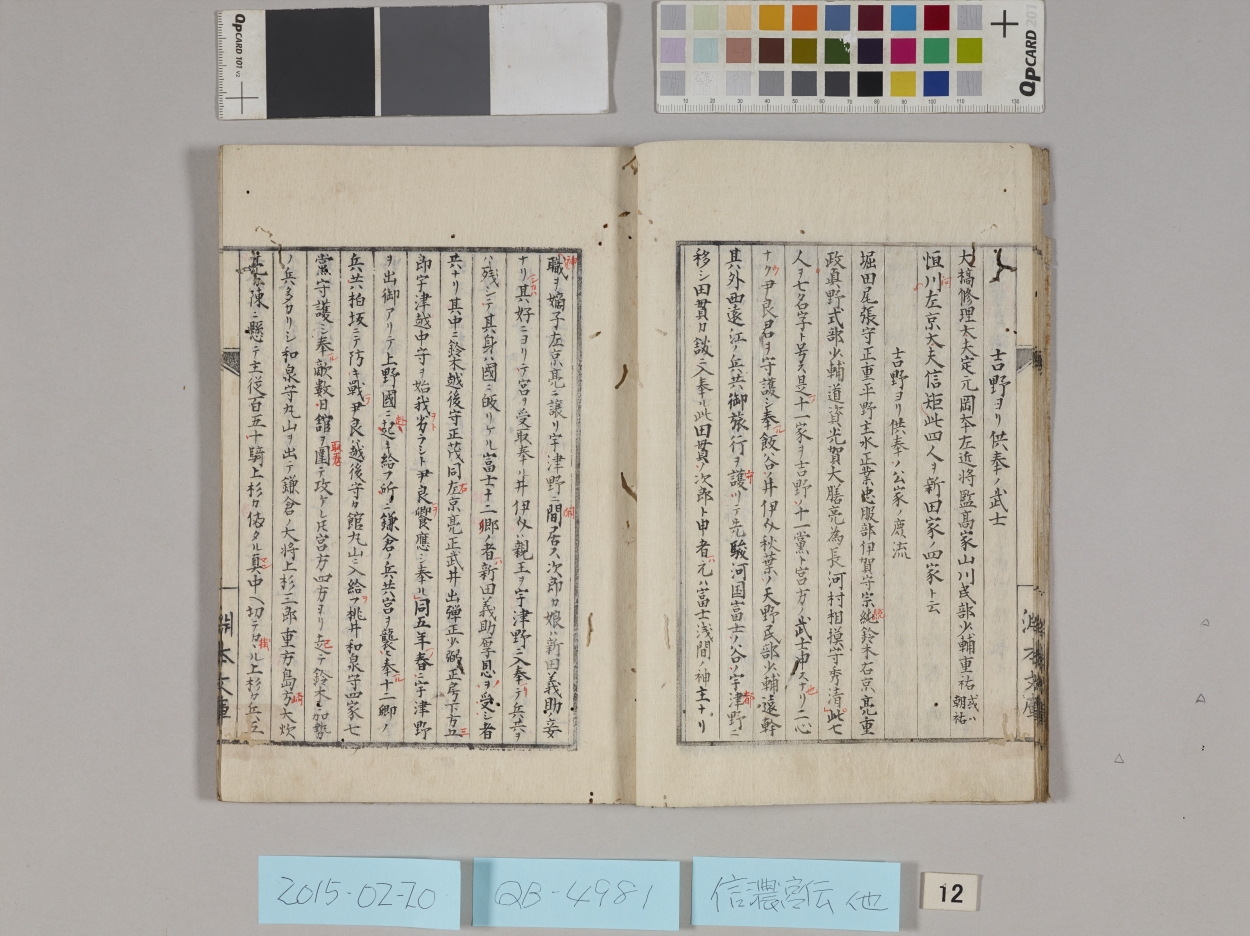 吉野ヨリ供奉ノ武士
大橋修理大夫定元岡本左近将監高家山川民部少輔重祐或ハ朝祐
恒川左京大夫信矩此四人ヲ新田家ノ四家ト云
吉野ヨリ供奉ノ公家ノ庶流
堀田尾張守正重平野主水正業忠服部伊賀守宗純鈴木右京亮重
政真野式部少輔道資光賀大膳亮為長河村相摸守秀清此七
人ヲ七名字ト号ス是十一家ヲ吉野ノ十一黨ト宮方ノ武士申スナリ二心
ナク尹良君ヲ守護シ奉飯谷ノ井伊秋葉ノ天野民部少輔遠幹
其外西遠江ノ兵共御旅行ヲ護リテ先駿河国富士ノ谷宇津野ニ
移シ田貫カ舘ニ入奉ル此田貫次郎ト申者元ハ富士浅間ノ神主ナリ
神職ヲ嫡子左京亮ニ譲リ宇津野ニ間居ス次郎カ娘ハ新田義助ノ妾
ナリ其好ニヨリテ宮ヲ受取奉ル井伊ハ親王ヲ宇津野ニ入奉テ兵共ヲ
ハ残シテ其身ハ國ニ皈リケル富士十二郷ノ者新田義助厚恩ヲ受シ者
共ナリ其中ニ鈴木越後守正茂同左京亮正武井出弾正少弼正房下方五
郎宇津越中守ヲ始我劣ラシト尹良饗應シ奉ル同五年春宇津野
ヲ出御アリテ上野國ニ起キ給フ所ニ鎌倉ノ兵共宮ヲ襲奉十二郷ノ
兵共柏坂ニテ防キ戰尹良ハ越後守カ館丸山ニ入給フ桃井和泉守四家七
黨守護シ奉敵数日舘ヲ圍テ攻ケレ宮方四方ヨリ起テ鈴木ニ加勢
ノ兵多カリシ和泉守丸山ヲ出テ鎌倉ノ大将上杉三郎重方島方大炊
其家陳ニ懸テ主從百五十騎上杉カ陣タル真中ヘ切テカヽル上杉カ兵三
QPCARD 101 v2
QPCARD 201
10 20 30 40 50 60 70 80 90 100 110 130
2015-02-20
QB-4981
信濃宮伝 他
12